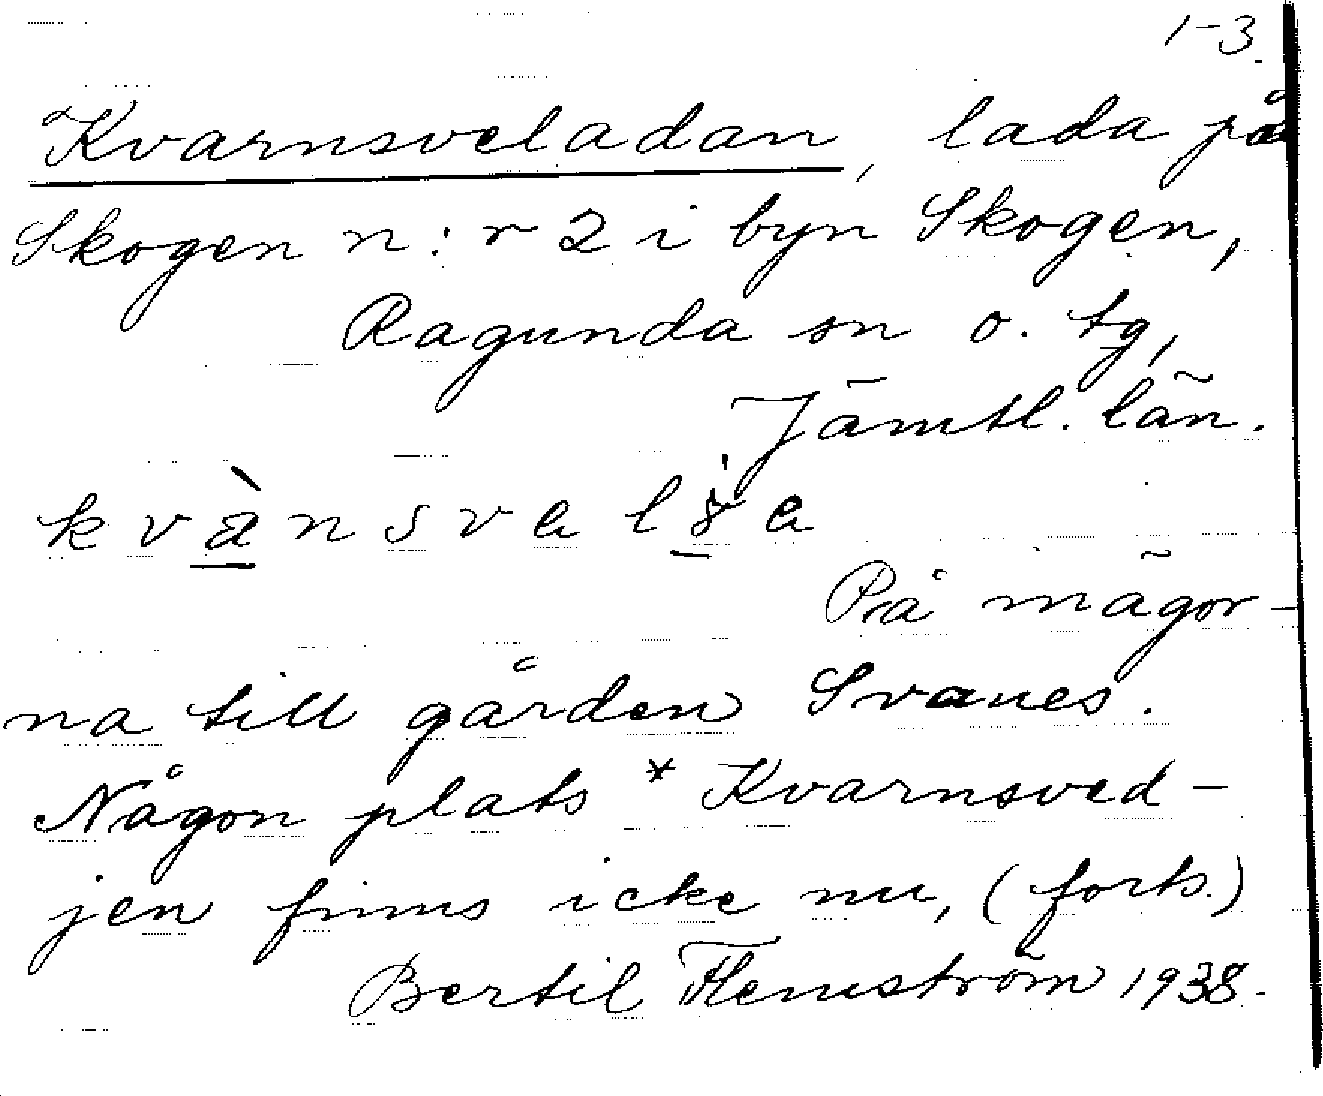 1-3.
Kvarnsveladan, lada på
Skogen n:r 2 i byn Skogen,
Ragunda sn o. tg,
Jämtl. län.
På mågor-
na till gården Svanes.
Någon plats * Kvarnsved-
jen finns icke nu, (forts.)
Bertil Flemström 1938.